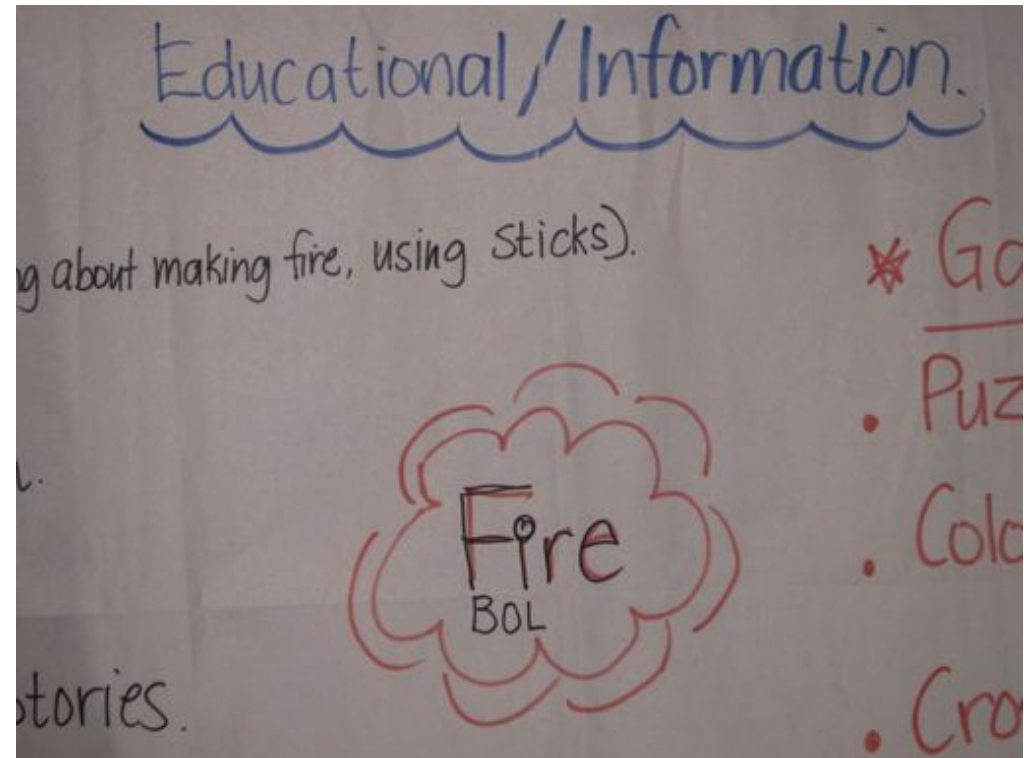 Educational/Information.
g about making fire, using sticks).
* Ga
. Puz
Fire
BOL
. Colo
tories.
. Cro